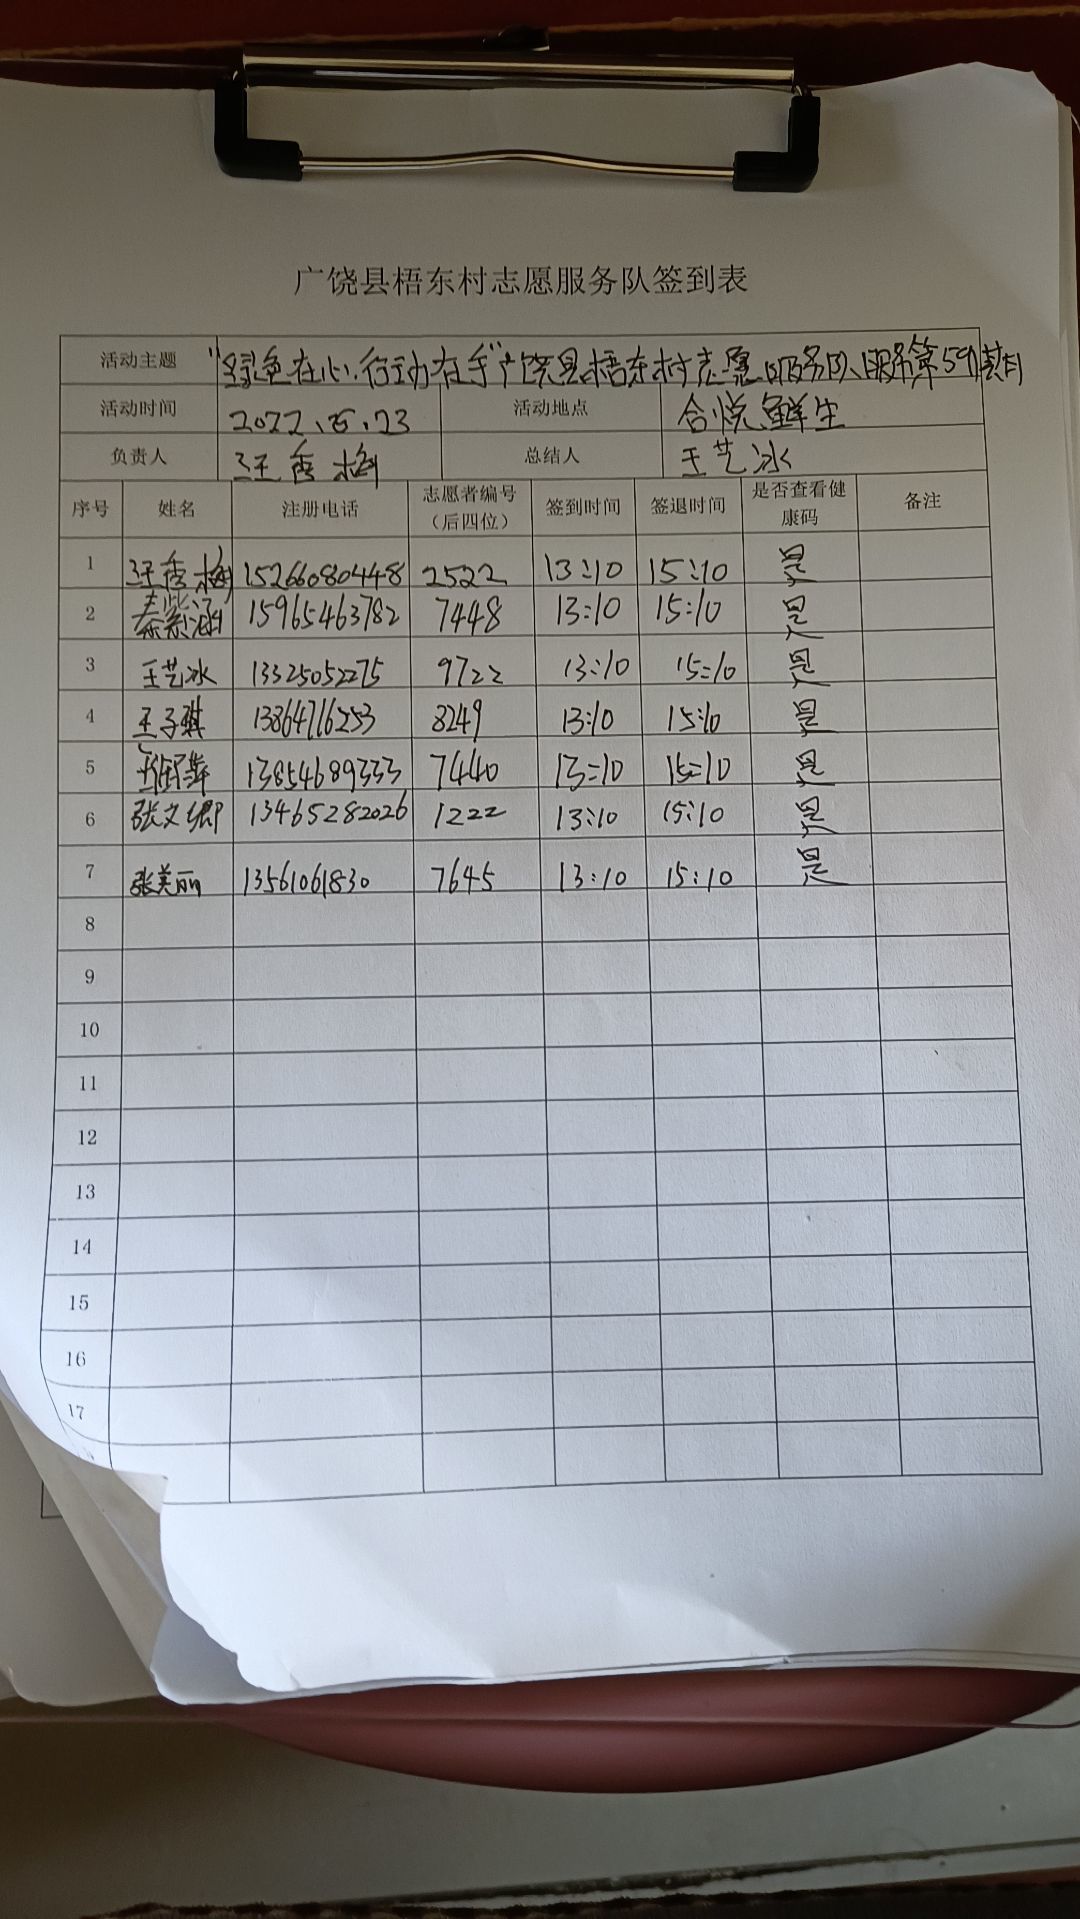 广饶县梧东村志愿服务队签到表
活动主题 "绿色在心,行动在手"广饶县梧东村志愿服务队服务第591期
活动时间 2022.5.23 活动地点 合悦鲜生
负责人 王秀梅 总结人 王艺冰
序号 姓名 注册电话 志愿者编号(后四位) 签到时间 签退时间 是否查看健康码 备注
1 王秀梅 15266080448 2522 13:10 15:10 是
2 秦紫涵 15965463782 7448 13:10 15:10 是
3 王艺冰 13325052275 9722 13:10 15:10 是
4 王子琪 13864716253 8249 13:10 15:10 是
5 13854689333 7440 13:10 15:10 是
6 张文卿 13465282026 1222 13:10 15:10 是
7 张美丽 13561061830 7645 13:10 15:10 是
8
9
10
11
12
13
14
15
16
17